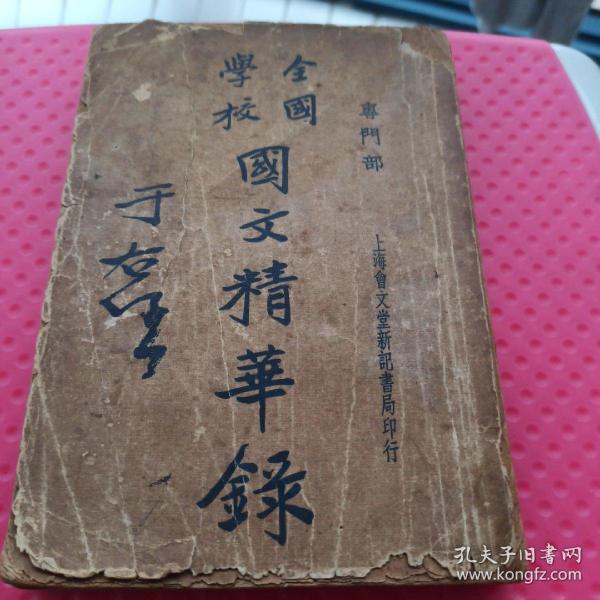 專門部
上海會文堂新記書局印行
全國
學校
國文精華錄
于右任
孔夫子旧書网
www.kongfz.com